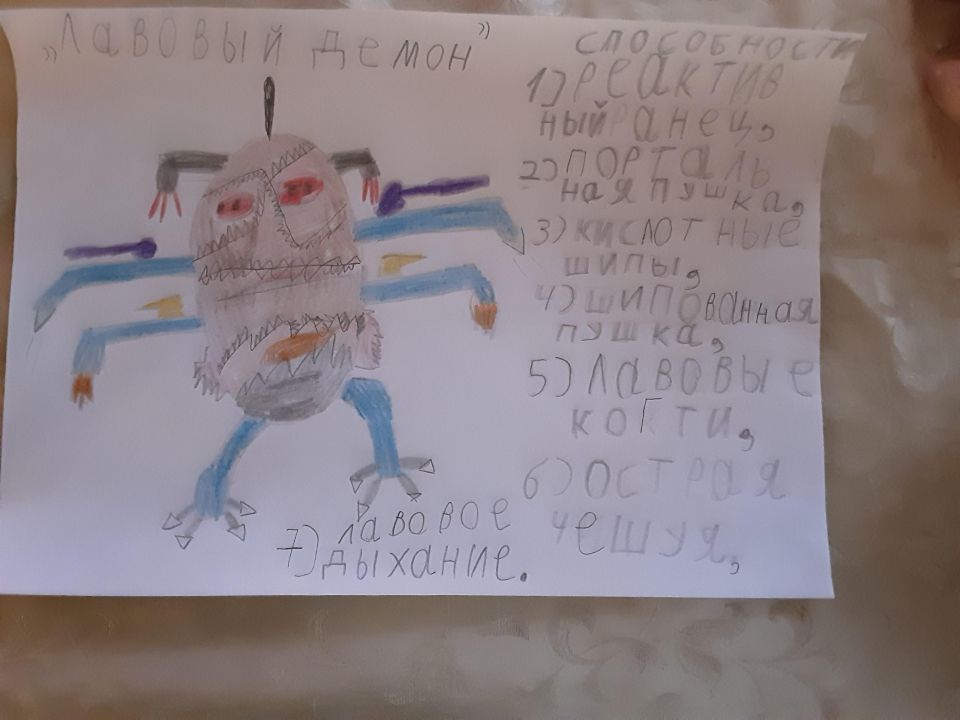 „Лавовый демон”
способности
1) Реактив
ный ранец,
2) порталь
ная пушка,
3) кислотные
шипы,
4) шипованная
пушка,
5) лавовые
когти,
6) острая
чешуя,
7) лавовое
дыхание.